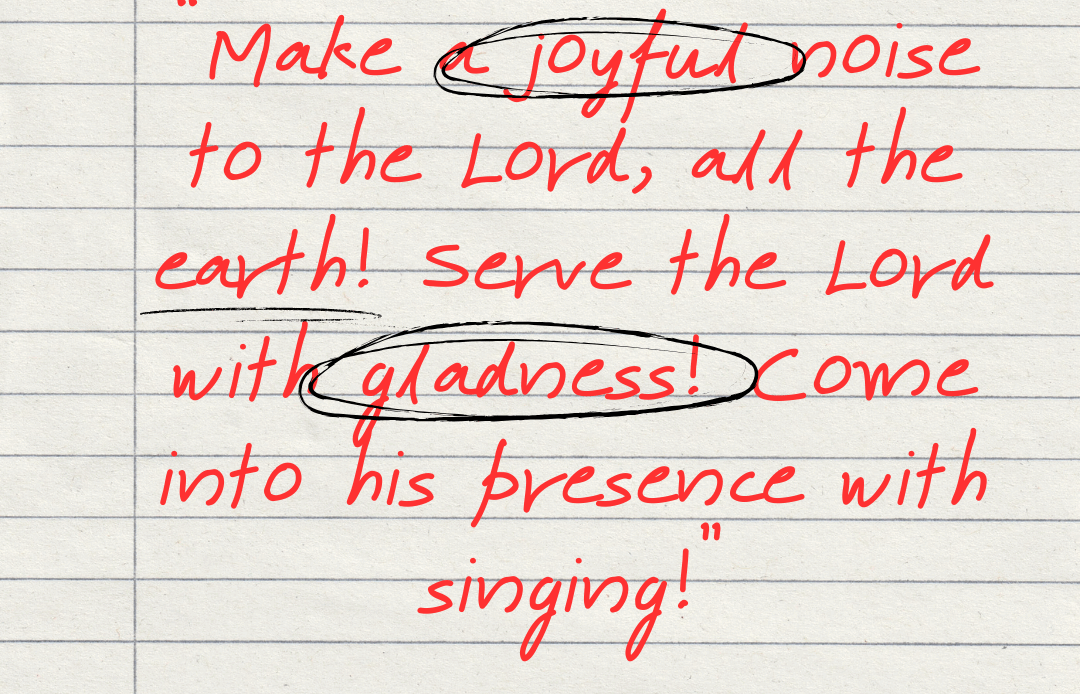 "Make a joyful noise
to the Lord, all the
earth! Serve the Lord
with gladness! Come
into his presence with
singing!"